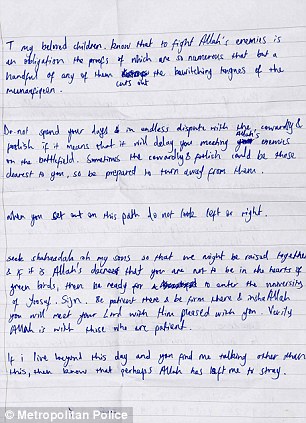 T my beloved children. know that to fight Allah's enemies is
an obligation the proofs of which are so numerous that but a
handful of any of them the bewitching tongues of the
cuts out
munafiqeen.
Do not spend your days in endless dispute with the cowardly &
foolish if it means that it will delay you meeting Allah's enemies
on the battlefield. Sometimes the cowardly & foolish could be those
dearest to you, so be prepared to turn away from them.
when you set out on this path do not look left or right.
seek shahaadah oh my sons so that we might be raised together
& if it is Allah's decree that you are not to be in the hearts of
green birds, then be ready for to enter the university
of Yusuf. Sijn. Be patient there & be firm there & insha Allah
you will meet your Lord with Him pleased with you. Verily
Allah is with those who are patient.
If i live beyond this day and you find me talking other than
this, then know that perhaps Allah has left me to stray.
© Metropolitan Police